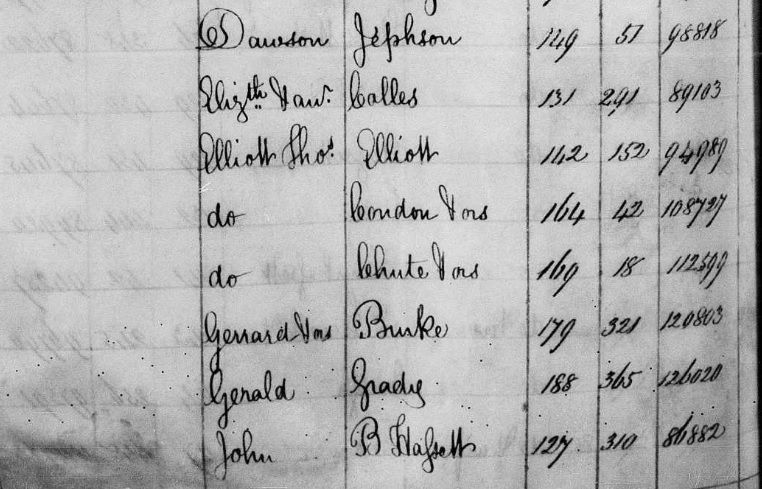 Dawson Jephson 149 51 98818
Elizth & anr. Colles 131 291 89103
Elliott Thos. Elliott 142 152 94989
do Condon & ors 164 42 108727
do Chute & ors 169 18 112599
Gerrard & ors Burke 179 321 120803
Gerald Grady 188 365 126020
John B Hassett 127 310 86882